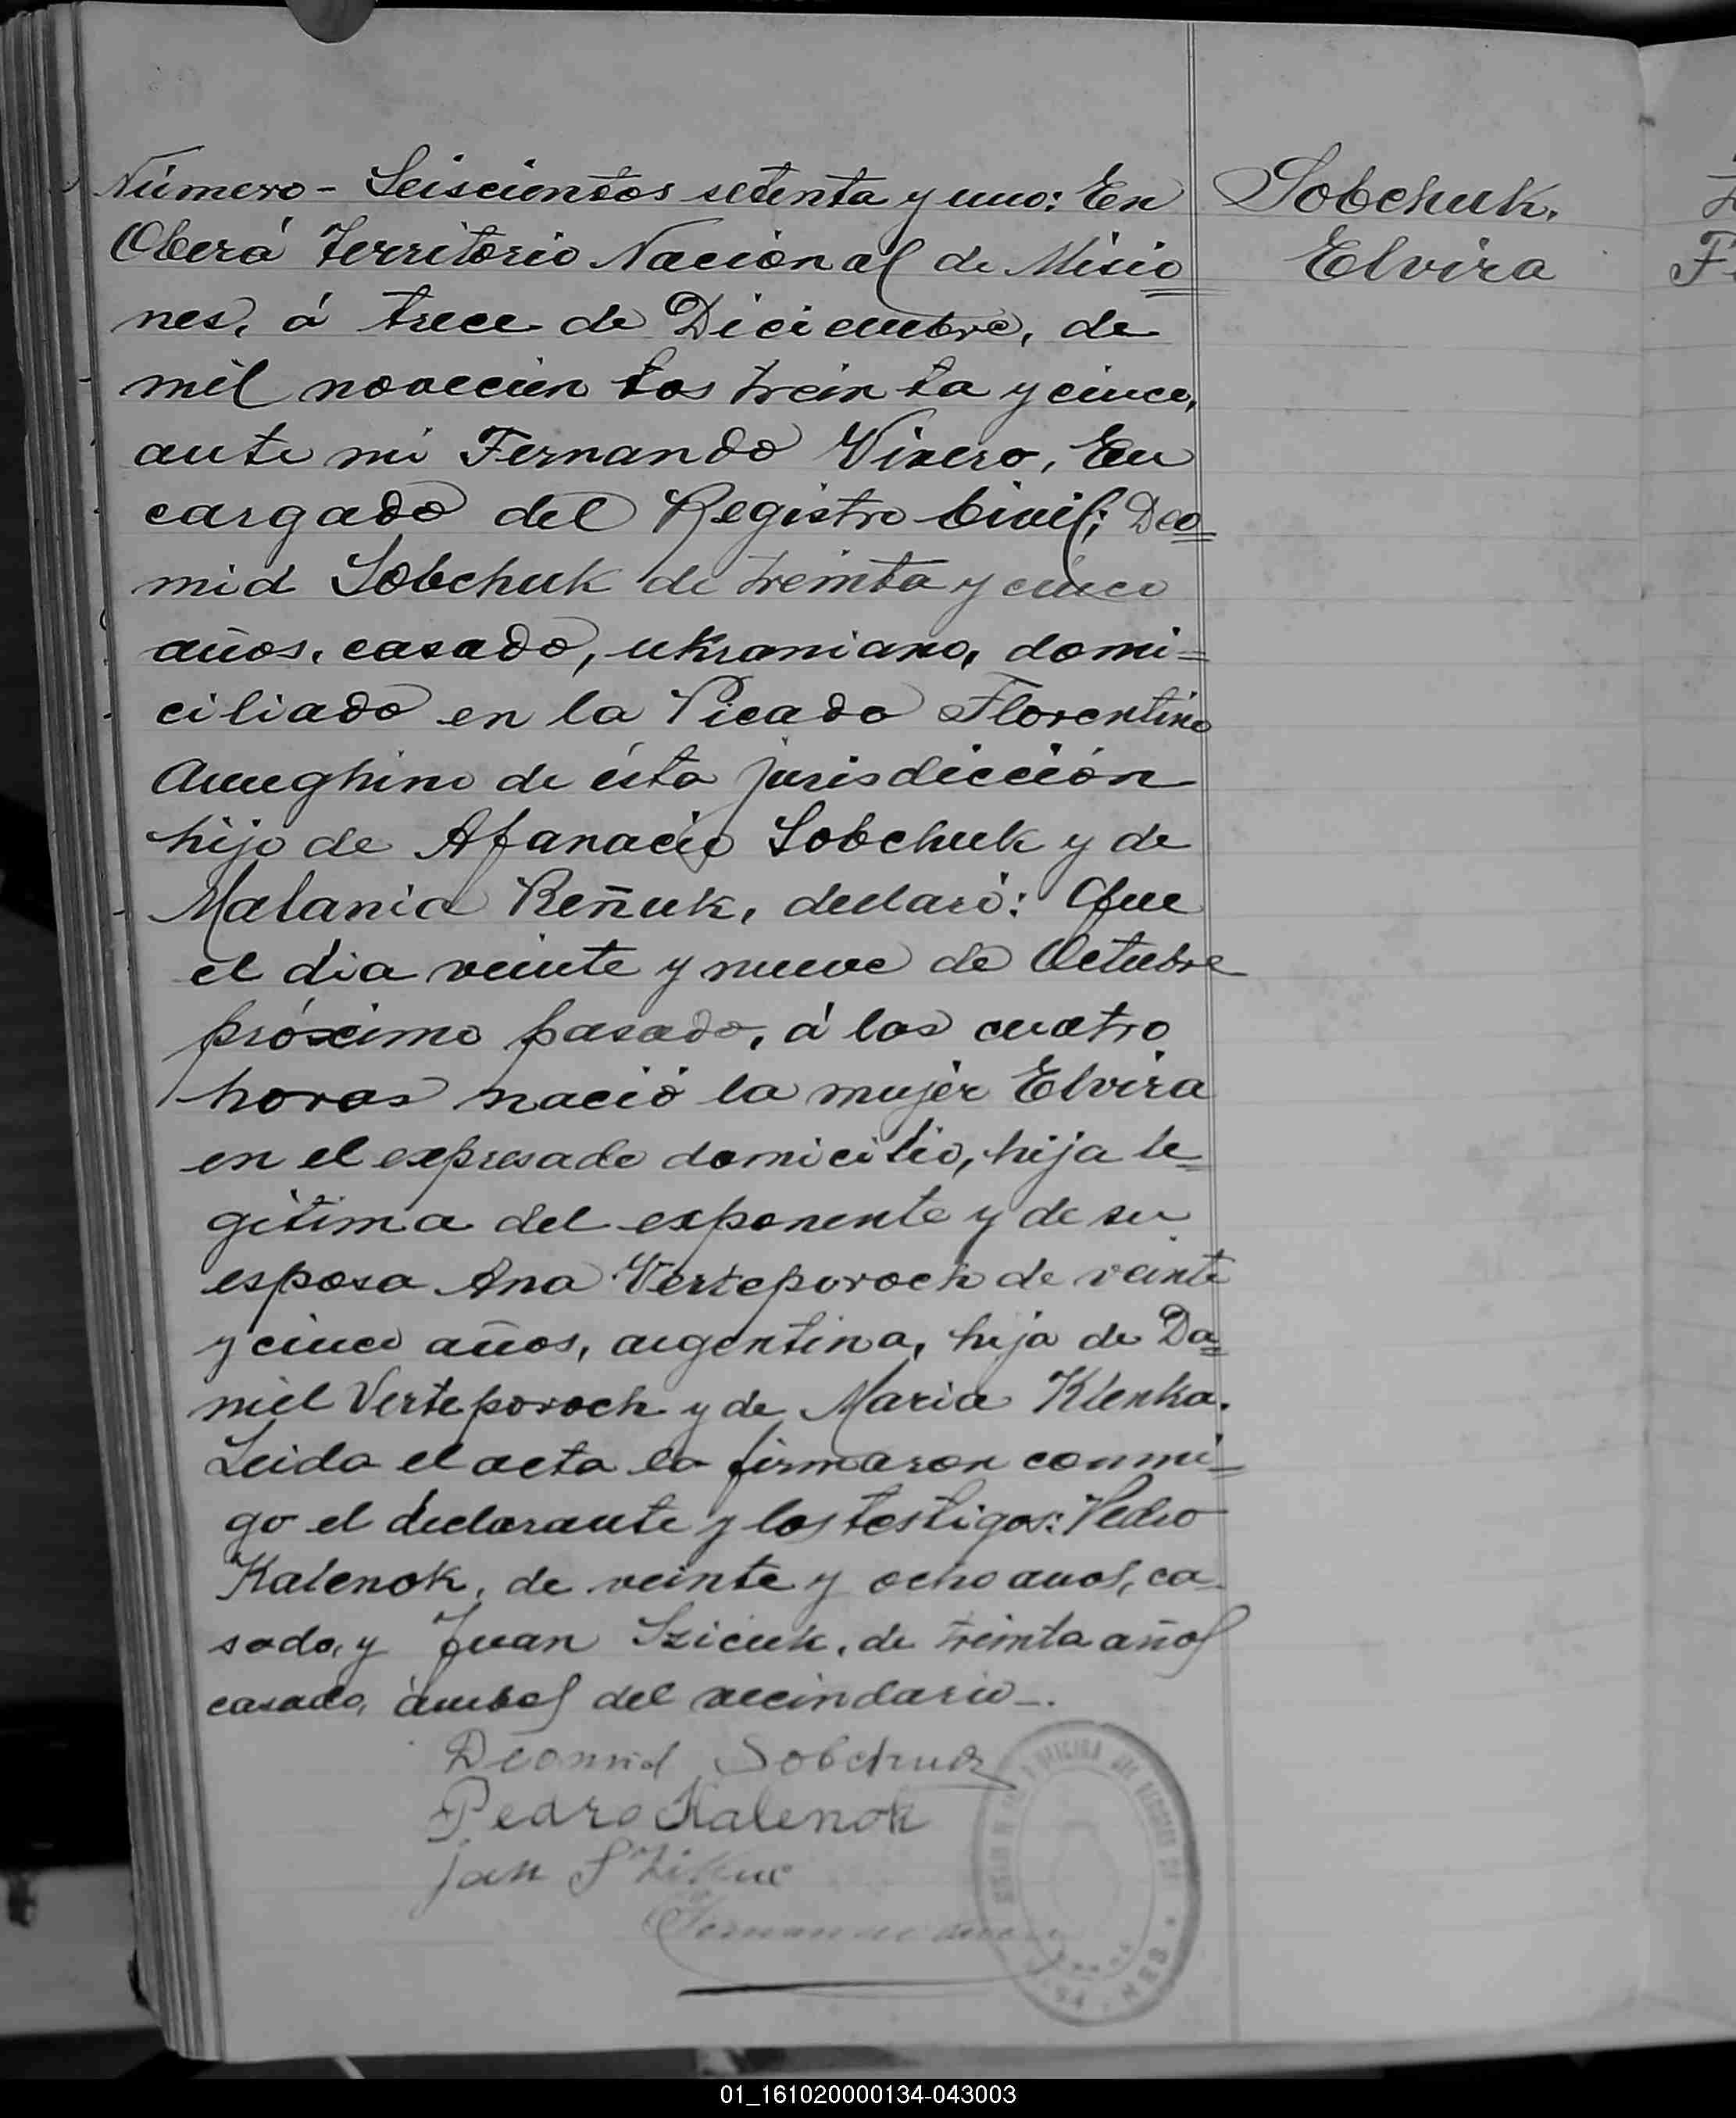 Número - Seiscientos setenta y uno: En
Oberá Territorio Nacional de Misio
nes, á trece de Diciembre, de
mil novecientos treinta y cinco,
ante mi Fernando Vivero, En
cargado del Registro Civil; Deo
mid Sobchuk de treinta y cinco
años, casado, ukraniano, domi=
ciliado en la Picada Florentino
Ameghino de ésta jurisdicción
hijo de Afanacio Sobchuk y de
Malania Reñuk, declaró: Que
el dia veinte y nueve de Octubre
próximo pasado, á las cuatro
horas nació la mujer Elvira
en el expresado domicilio, hija le=
gitima del exponente y de su
esposa Ana Verteporoch de veinte
y cinco años, argentina, hija de Da=
niel Verteporoch y de Maria Klenka.
Leida el acta la firmaron conmi=
go el declarante y los testigos: Pedro
Kalenok, de veinte y ocho años, ca
sado, y Juan Szicuk, de treinta años
casado, ámbos del vecindario_.
Sobchuk.
Elvira
Deomid Sobchuk
Pedro Kalenok
Jan
01_161020000134-043003